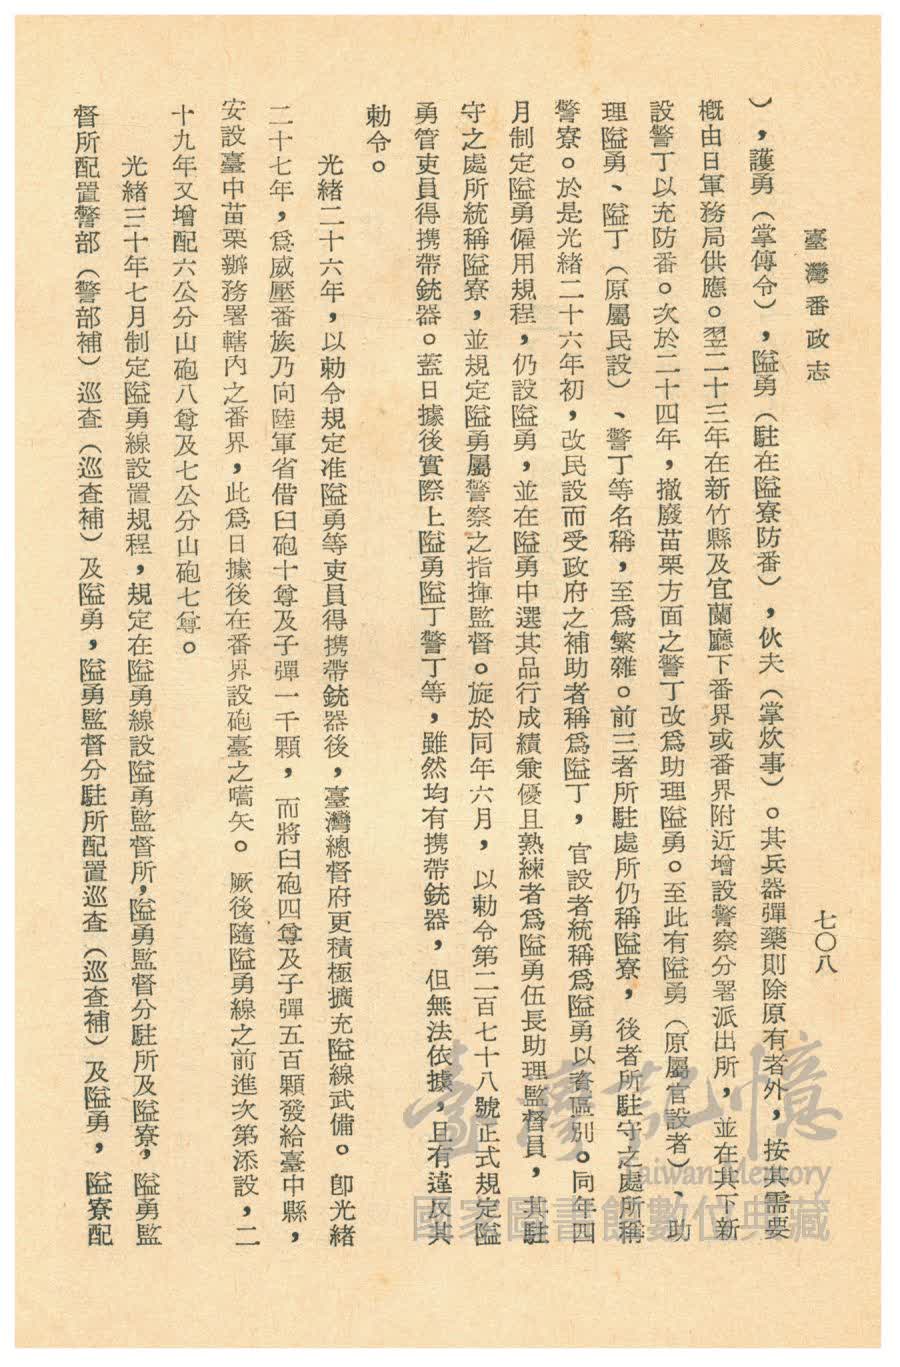 臺灣番政志
七〇八
），護勇（掌傳令），隘勇（駐在隘寮防番），伙夫（掌炊事）。其兵器彈藥則除原有者外，按其需要
概由日軍務局供應。翌二十三年在新竹縣及宜蘭廳下番界或番界附近增設警察分署派出所，並在其下新
設警丁以充防番。次於二十四年，撤廢苗栗方面之警丁改爲助理隘勇。至此有隘勇（原屬官設者）、助
理隘勇、隘丁（原屬民設）、警丁等名稱，至爲繁雜。前三者所駐處所仍稱隘寮，後者所駐守之處所稱
警寮。於是光緒二十六年初，改民設而受政府之補助者稱爲隘丁，官設者統稱爲隘勇以資區別。同年四
月制定隘勇僱用規程，仍設隘勇，並在隘勇中選其品行成績兼優且熟練者爲隘勇伍長助理監督員，其駐
守之處所統稱隘寮，並規定隘勇屬警察之指揮監督。旋於同年六月，以勅令第二百七十八號正式規定隘
勇管吏員得携帶銃器。蓋日據後實際上隘勇隘丁警丁等，雖然均有携帶銃器，但無法依據，且有違反其
勅令。
光緒二十六年，以勅令規定准隘勇等吏員得携帶銃器後，臺灣總督府更積極擴充隘線武備。卽光緒
二十七年，爲威壓番族乃向陸軍省借臼砲十尊及子彈一千顆，而將臼砲四尊及子彈五百顆發給臺中縣，
安設臺中苗栗辦務署轄內之番界，此爲日據後在番界設砲臺之嚆矢。厥後隨隘勇線之前進次第添設，二
十九年又增配六公分山砲八尊及七公分山砲七尊。
光緒三十年七月制定隘勇線設置規程，規定在隘勇線設隘勇監督所，隘勇監督分駐所及隘寮，隘勇監
督所配置警部（警部補）巡查（巡查補）及隘勇，隘勇監督分駐所配置巡查（巡查補）及隘勇，隘寮配
臺灣記憶
Taiwan Memory
國家圖書館數位典藏